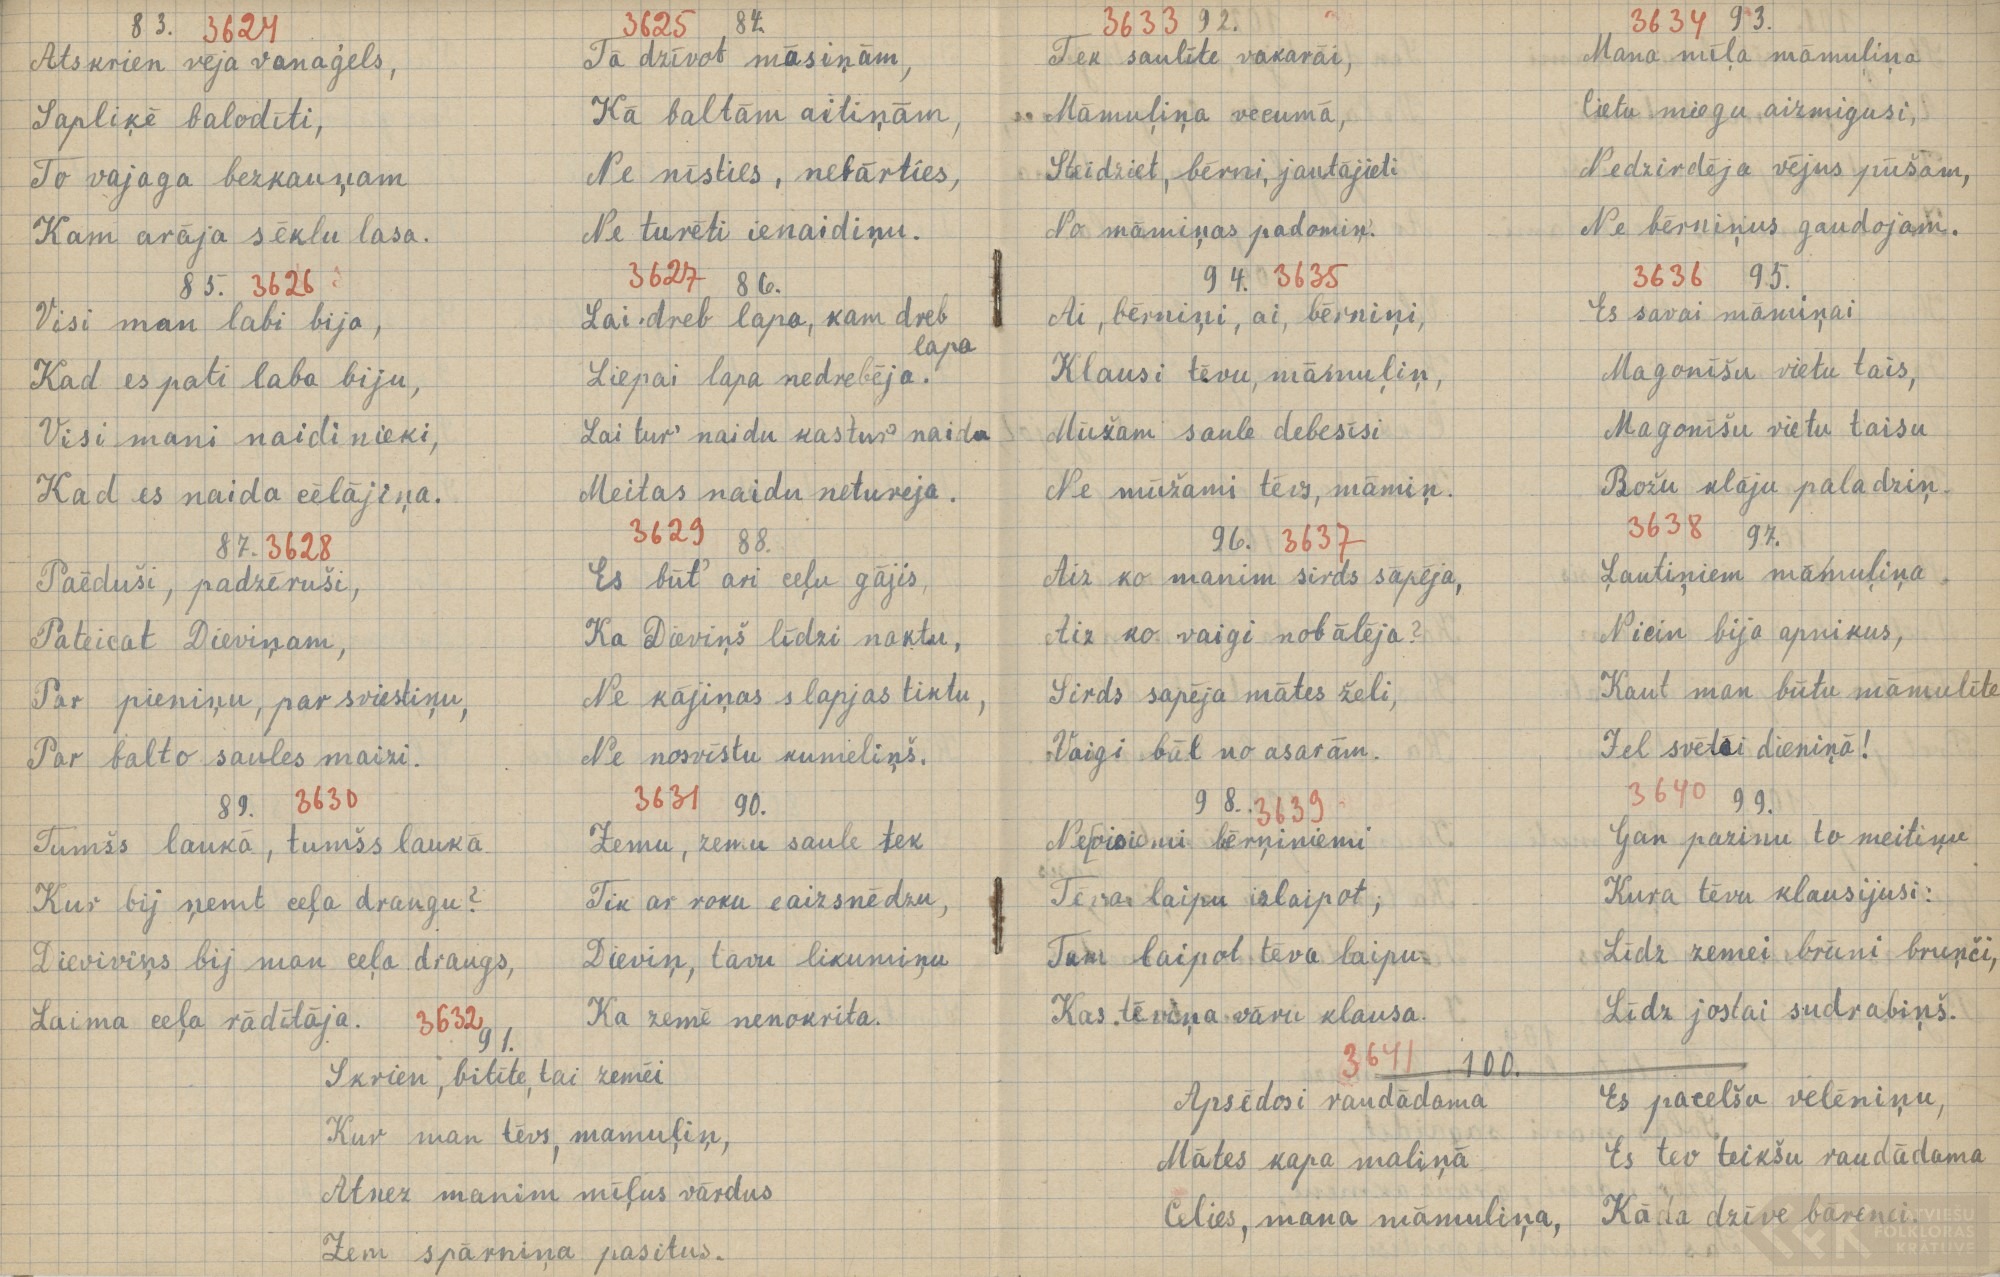 83. 3624
Atskrien vēja vanaģels,
Sapliķē balodīti,
To vajaga bezkauņam
Kam arāja sēklu lasa.
3625 84.
Tā dzīvot māsiņām,
Kā baltām aitiņām,
Ne nīsties, nebārties,
Ne turēti ienaidiņu.
85. 3626
Visi man labi bija,
Kad es pati laba biju,
Visi mani naidinieki,
Kad es naida cēlājiņa.
3627 86.
Lai dreb lapa, kam dreb
lapa
Liepai lapa nedrebēja.
Lai tur' naidu kas tur' naidu
Meitas naidu neturēja.
87. 3628
Paēduši, padzēruši,
Pateicat Dieviņam,
Par pieniņu, par sviestiņu,
Par balto saules maizi.
3629 88.
Es būt' ari ceļu gājis,
Ka Dieviņš līdzi naktu,
Ne kājiņas slapjas tiktu,
Ne nosvīstu kumeliņš.
89. 3630
Tumšs laukā, tumšs laukā
Kur bij ņemt ceļa draugu?
Dieviviņs bij man ceļa draugs,
Laima ceļa rādītāja.
3631 90.
Zemu, zemu saule tek
Tik ar roku eaizsnēdzu,
Dieviņ, tavu likumiņu
Ka zemē nenokrita.
3632
91.
Skrien, bitīte, tai zemēi
Kur man tēvs, mamuļiņ,
Atnez manim mīļus vārdus
Zem spārniņa pasitus.
3633 92.
Tek saulīte vakarāi,
Māmuļiņa vecumā,
Steidziet, bērni, jautājieti
No māmiņas padomiņ.
3634 93.
Mana mīļa māmuliņa
Cietu miegu aizmigusi,
Nedzirdēja vējus pūšam,
Ne bērniņus gaudojam.
94. 3635
Ai, bērniņi, ai, bērniņi,
Klausi tēvu, māmuļiņ,
Mūžam saule debesīsi
Ne mūžami tēvs, māmiņ.
3636 95.
Es savai māmiņai
Magonīšu vietu tais,
Magonīšu vietu taisu
Božu klāju paladziņ.
96. 3637
Aiz ko manim sirds sāpēja,
Aiz ko vaigi nobālēja?
Sirds sapēja mātes želi,
Vaigi bāl no asarām.
3638 97.
Ļautiņiem māmuļiņa
Nicin bija apnikus,
Kaut man būtu māmulīte
Jel svētāi dieniņā!
98. 3639
bērņiniemi
laipu izlaipot;
Tam laipot tēva laipu
Kas tēviņa vāru klausa.
3640 99.
Gan pazinu to meitiņu
Kura tēvu klausijusi:
Līdz zemei brūni bruņči,
Līdz jostai sudrabiņš.
3641 100.
Apsēdosi raudādama
Mātes kapa maliņā
Celies, mana māmuliņa,
Es pacelšu velēniņu,
Es tev teikšu raudādama
Kāda dzīve bārenei.
LATVIEŠU
FOLKLORAS
KRĀTUVE